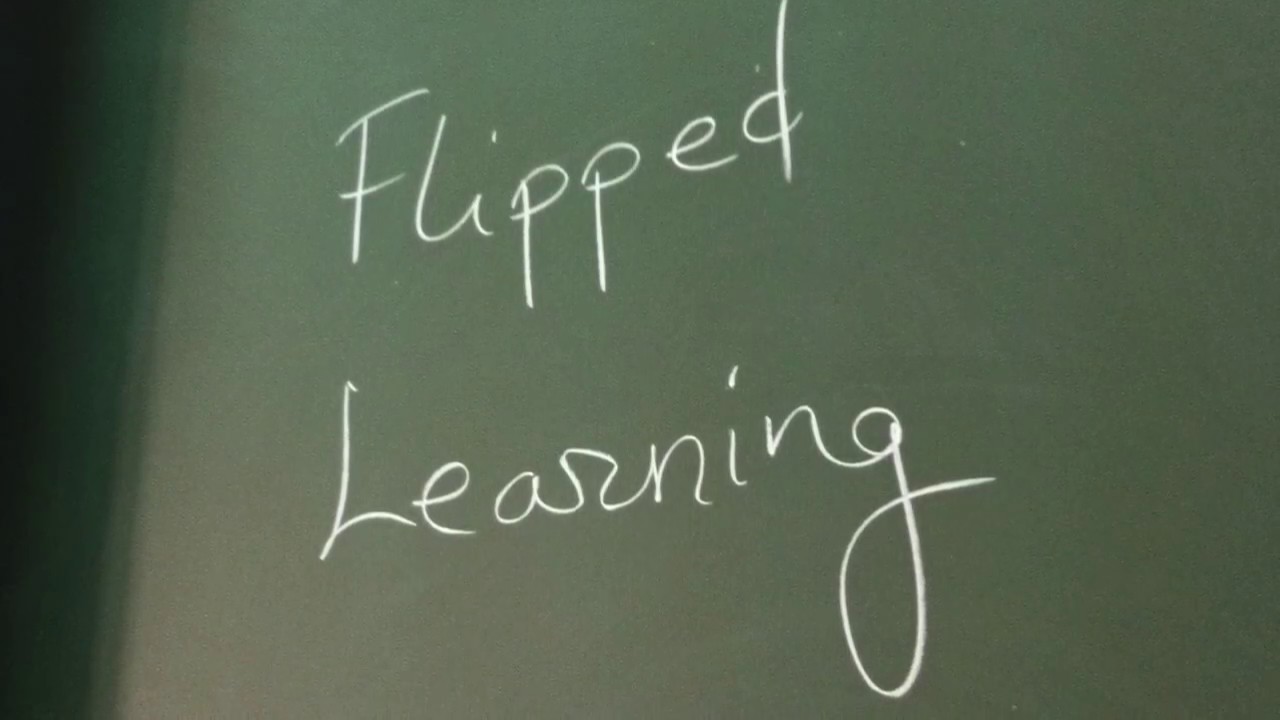 Flipped
Learning